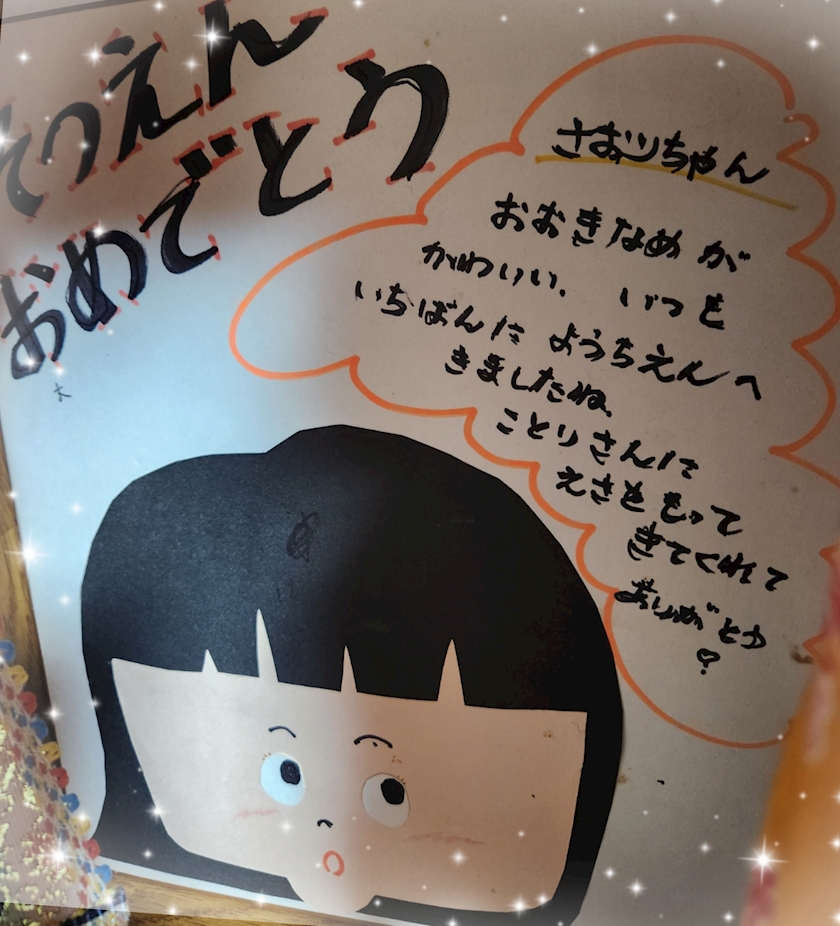 そつえん
おめでとう
さおりちゃん
おおきなめ が
かわいい、 いつも
いちばんに ようちえんへ
きましたね、
ことりさんに
えさを もって
きてくれて
ありがとう
♡